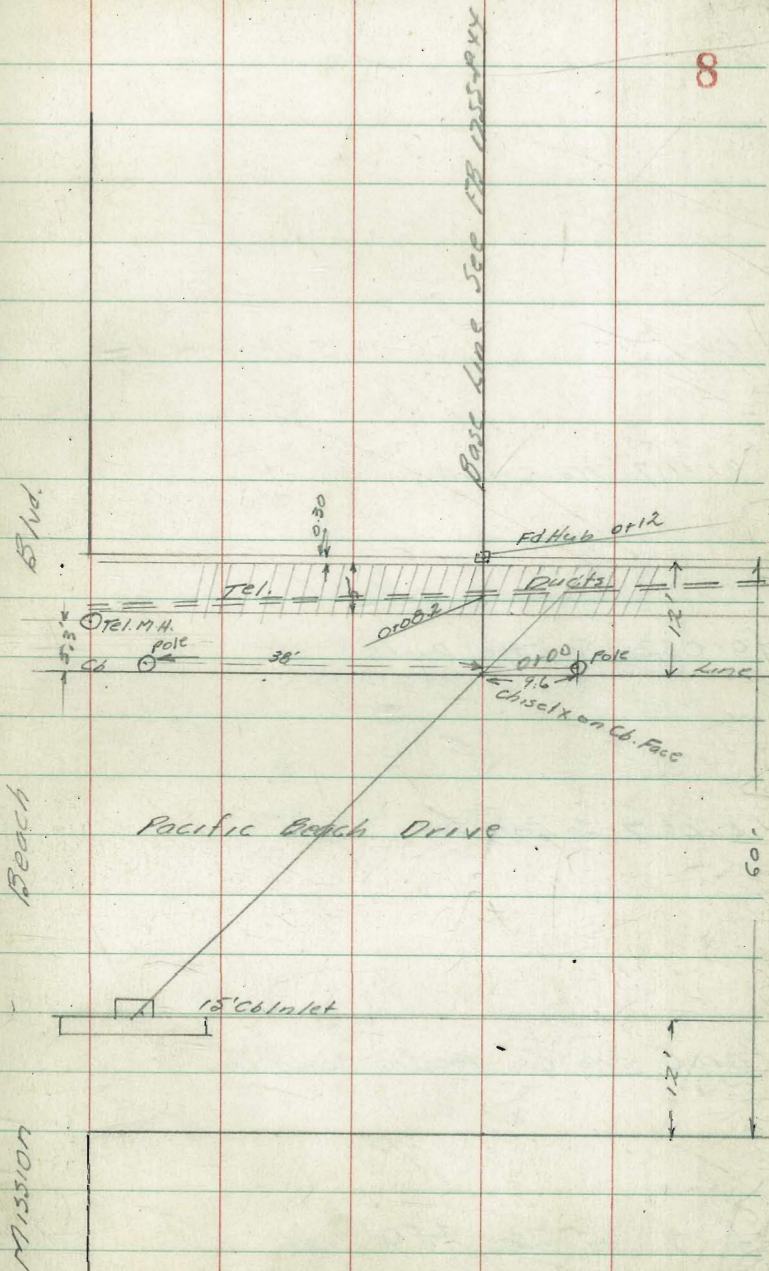 8
Base Line See FB 1755-P44
Blvd.
0.30
Fd Hub 0+12
Tel.
Ducits
5'
0+00.2
12'
Tel. M.H.
5.3'
Cb
pole
38'
0+00
Pole
9.6
Line
Chisel x on Cb. Face
Beach
Pacific Beach Drive
60'
15' Cb Inlet
12'
Mission